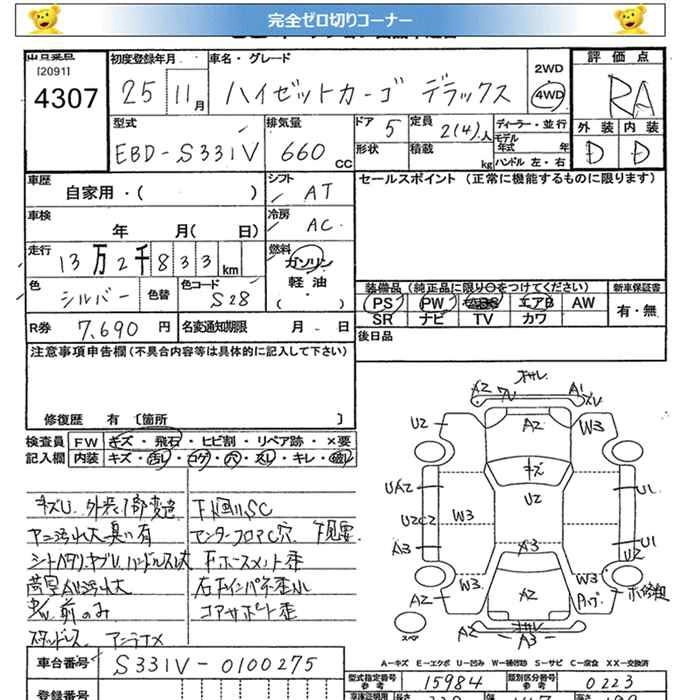 完全ゼロ切りコーナー
[2091]
4307
初度登録年月
25 11月
車名・グレード
ハイゼットカーゴ デラックス
2WD
4WD
評価点
RA
型式
EBD-S331V
排気量
660 CC
ドア 5
形状
定員 2(4)人
積載 kg
ディーラー・並行
モデル年式 年
ハンドル 左・右
外装 内装
D D
車歴
自家用・( )
シフト
AT
セールスポイント (正常に機能するものに限ります)
車検
年 月( 日)
冷房
AC
走行
13万2千833km
燃料
ガソリン
軽油
( )
色
シルバー
色替
色コード
S28
装備品 (純正品に限り○をつけてください)
新車保証書
PS PW エアB AW
SR ナビ TV カワ
有・無
R券 7,690 円
名変通知期限 月 日
後日品
注意事項申告欄(不具合内容等は具体的に記入して下さい)
修復歴 有 〔箇所 〕
検査員
記入欄
FW キズ・飛石・ヒビ割・リペア跡・×要
内装 キズ・汚レ・コゲ・穴・スレ・キレ・
キズU. 外装1部変色
下回りSC
アンダーフロアC穴 下見要
シートヘタリ
コアサポート歪
前のみ
スタッドレス
アンテナ
A2 W3 U2
キズ
U2
W3
U2 UA2 U2C2 A3 A2
A1 XV W3 U1 U1 U2
A3 W3 W3
A2
A2 A3
スペア
A-キズ E-エクボ U-凹み W-補修跡 S-サビ C-腐食 XX-交換済
車台番号 S331V-0100275
型式指定番号 参考 15984
類別区分番号 参考 0223